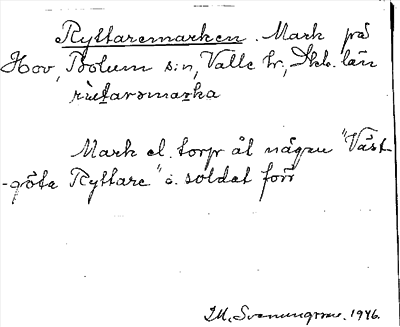 Ryttaremarken. Mark på
Hov, Bolum s:n, Valle hr, Skb. län
rùtarəmarka
Mark el. torp åt någon "Väst-
-göta Ryttare" o. soldat förr
I.M. Svanungsson. 1946.